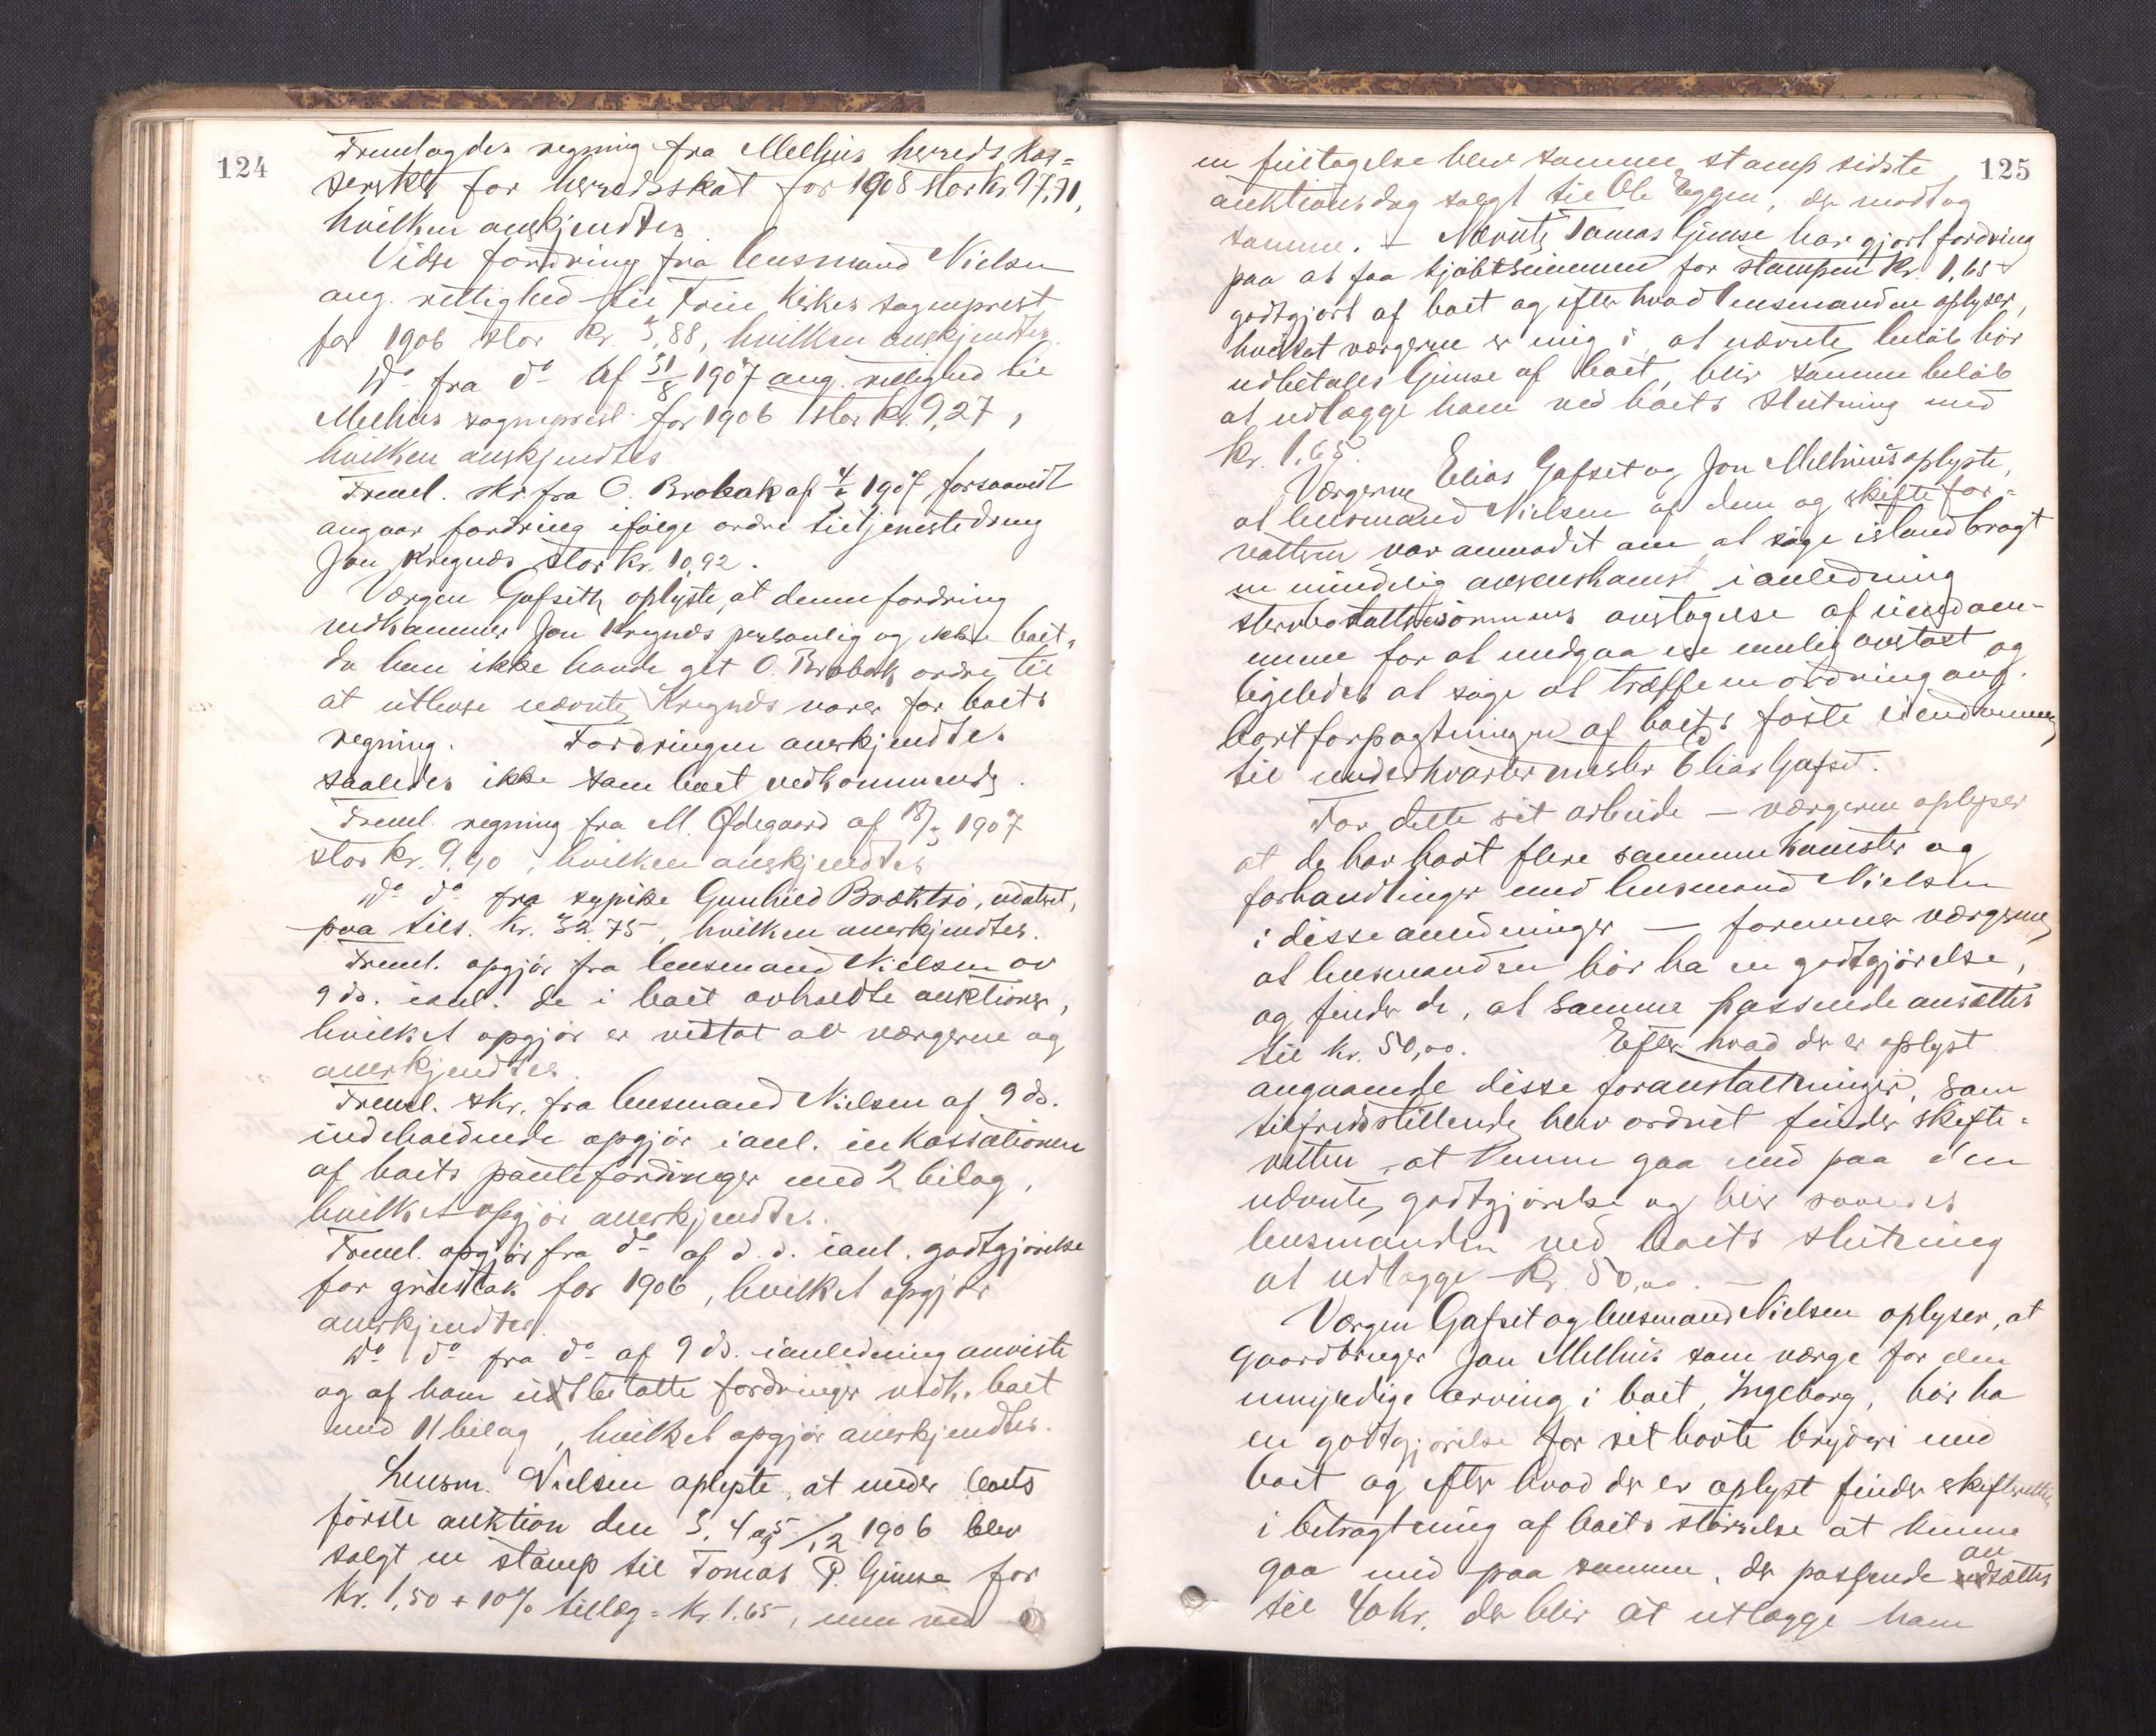 124
Fremlagdes regning fra Melhus herreds kas=
serer for herredsskat for 1908 stor kr. 97,71,
hvilken anerkjendtes
Vidre fordring fra lensmand Nielsen
ang. rettighed til kirkes sogneprest
for 1906 stor kr. 3,88, hvilken anerkjendtes.
Do fra do af 31/8 1907 ang. rettighed til
Melhus sogneprest for 1906 stor kr. 9,27,
hvilken anerkjendtes
Freml. skr. fra O. Brobak af 1907 forsaavidt
angaar fordring ifølge ordre til tjenestedreng
Jon Kregnes stor kr. 10,92.
Værgen Gafseth oplyste, at denne fordring
vedkommer Jon Kregnes personlig og ikke boet,
da han ikke havde get O. Brobak ordre til
at utlevere nævnte Kregnes varer for boets
regning. Fordringen anerkjendtes
saaledes ikke som boet vedkommende.
Freml. regning fra M. Ødegaard af 18/3 1907
stor kr. 9,90, hvilken anerkjendtes
Do do fra sypike Gunhild Brækktrø, udatert,
paa tils. kr. 32,75, hvilken anerkjendtes.
Freml. opgjør fra lensmand Nielsen av
9 ds. ianl. de i boet avholdte auktioner,
hvilket opgjør er vedtat av værgerne og
anerkjendtes.
Freml. skr. fra lensmand Nielsen af 9 ds.
indeholdende opgjør ianl. inkassationen
af boets pantefordringer med 2 bilag,
hvilket opgjør anerkjendtes.
Freml. opgjør fra do af d. d. ianl. godtgjørelse
for grustak for 1906, hvilket opgjør
anerkjendtes.
Do do fra do af 9 ds. ianledning anviste
og af ham utbetalte fordringer vedk. boet
med 11 bilag, hvilket opgjør anerkjendtes.
Lensm. Nielsen oplyste, at under boets
første auktion den 3. 4 og 5/12 1906 blev
solgt en stamp til Tomas P. Gimse for
kr. 1,50 + 10% tillæg = kr. 1.65, men ved
125
en feiltagelse blev samme stamp sidste
auktionsdag solgt til Ole Eggen, der modtog
samme. – Nævnte Tomas Gimse har gjort fordring
paa at faa kjøbesummen for stampen kr. 1,65
godtgjort af boet og efter hvad lensmanden oplyser,
hvilket værgerne er enig i, at nævnte beløb bør
udbetales Gimse af boet, blir samme beløb
at udlægge ham ved boets slutning med
kr. 1.65.
Værgerne Elias Gafset og Jon Melhuus oplyste,
at lensmand Nielsen af dem og skiftefor=
valteren var anmodet om at søge istandbragt
en mindelig overenskomst ianledning
overtagelse af eiendom-
mene for at undgaa ese mulig anstøt og
ligeledes at søge at træffe en ordning ang.
bortforpagtningen af boets faste eiendomme
til underkvartermester Elias Gafset.
For dette sit arbeide – værgerne oplyser
at de har havt flere sammenkomster og
forhandlinger med lensmand Nielsen
i disse anledninger – formener værgerne
at lensmanden bør ha en godtgjørelse,
og finder de, at samme passende ansættes
til kr. 50,00. Efter hvad der er oplyst
angaaende disse foranstaltninger, som
tilfredsstillende blev ordnet finder skifte-
retten at kunne gaa med paa den
nævnte godtgjørelse og blir saaledes
lensmanden ved boets slutning
at udlægge kr. 50,00. –
Værgen Gafset og lensmand Nielsen oplyser, at
gaardbruger Jon Melhus som værge for den
umyndige arving i boet, Ingeborg, bør ha
en godtgjørelse for sit havte bryderi med
boet og efter hvad der er oplyst finder skifteretten
i betragtning af boets størrelse at kunne
gaa med paa samme, der passende ansættes
til 40 kr. der blir at utlægge ham